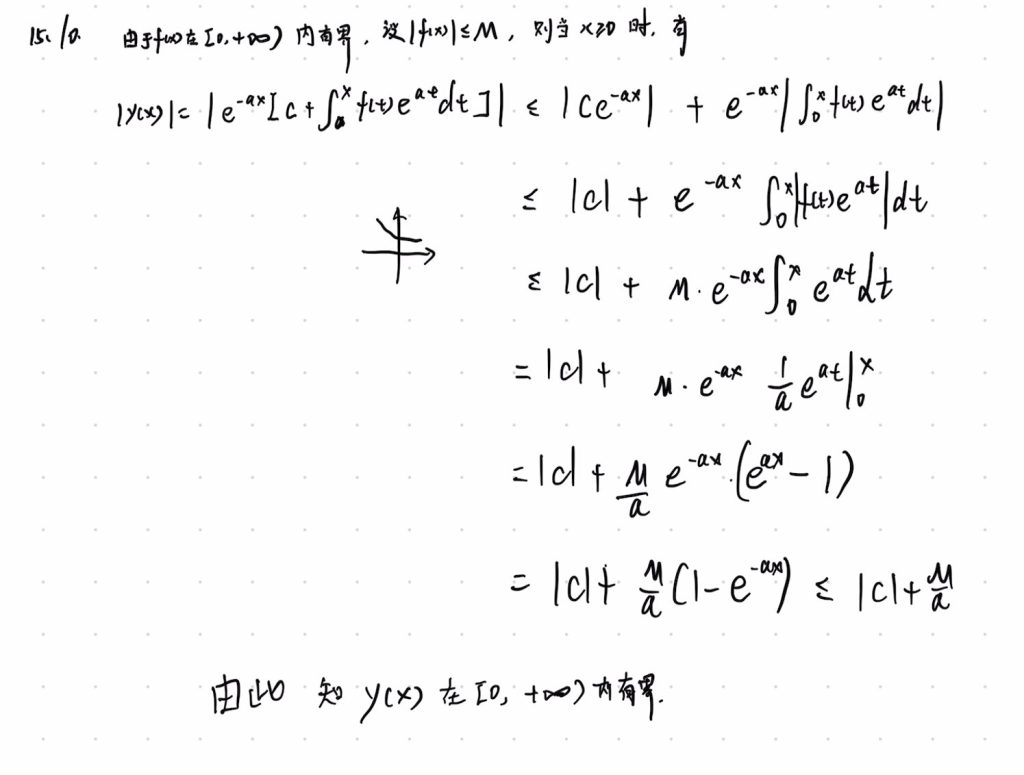 15. 10. 由于f(x)在[0,+∞)内有界，设|f(x)|≤M，则当x≥0时，有
|y(x)|=|e^{-ax}[c+∫_0^x f(t)e^{at}dt]| ≤ |Ce^{-ax}| + e^{-ax}|∫_0^x f(t)e^{at}dt|
≤ |c| + e^{-ax} ∫_0^x|f(t)e^{at}|dt
≤ |c| + M·e^{-ax}∫_0^x e^{at}dt
= |c| + M·e^{-ax} \frac{1}{a}e^{at}|_0^x
= |c| + \frac{M}{a} e^{-ax}·(e^{ax}-1)
= |c| + \frac{M}{a}(1-e^{-ax}) ≤ |c|+\frac{M}{a}
由此知 y(x) 在[0,+∞)内有界.